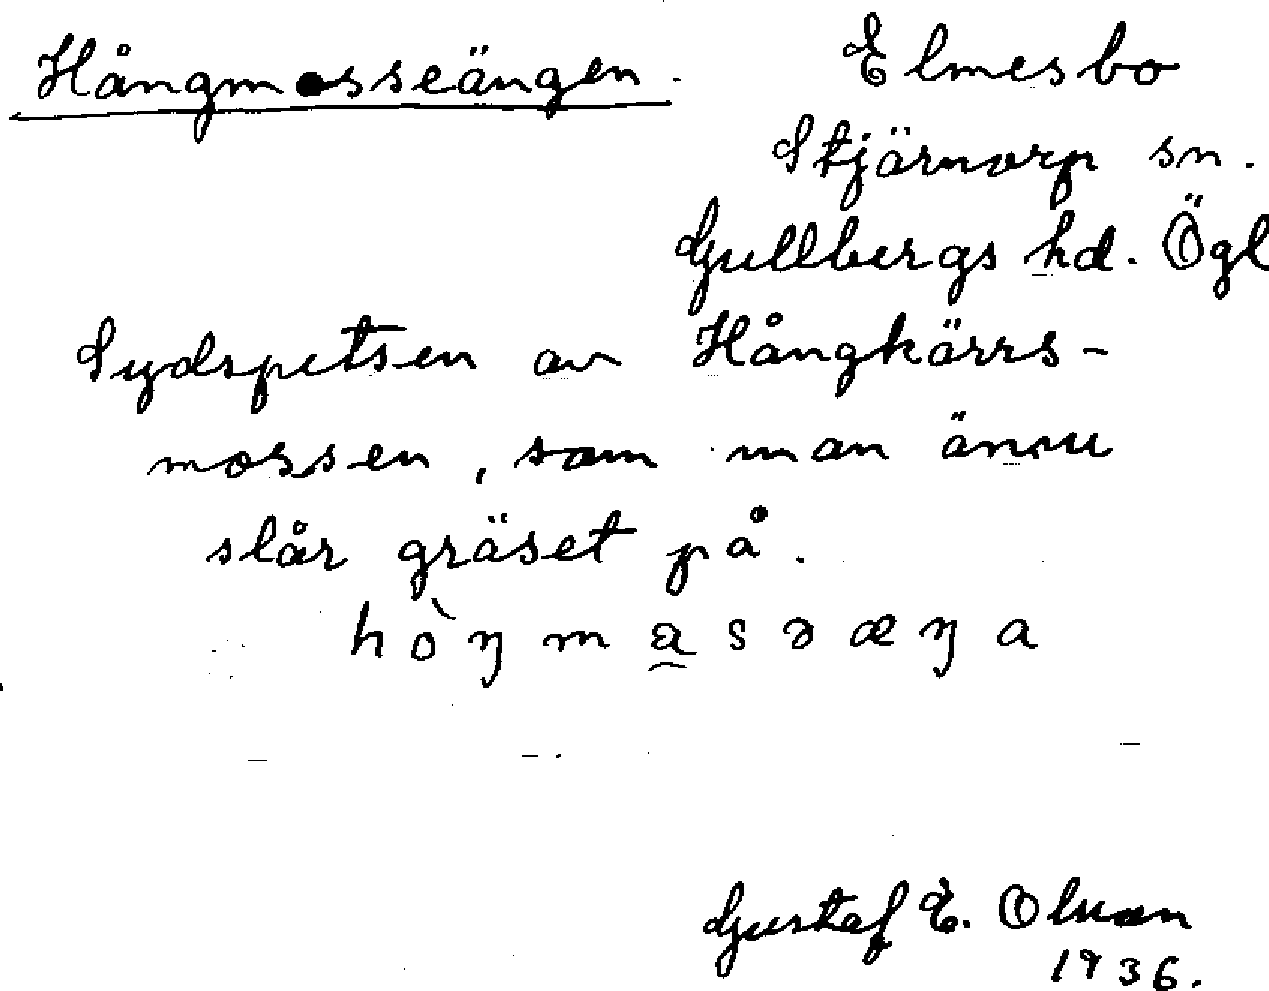 Hångmosseängen.
Elmesbo
Stjärnorp sn.
Gullbergs hd. Ögl
Sydspetsen av Hångkärrs-
mossen, som man ännu
slår gräset på.
hòŋma̲sɘæŋa
Gustaf E. Olson
1936.